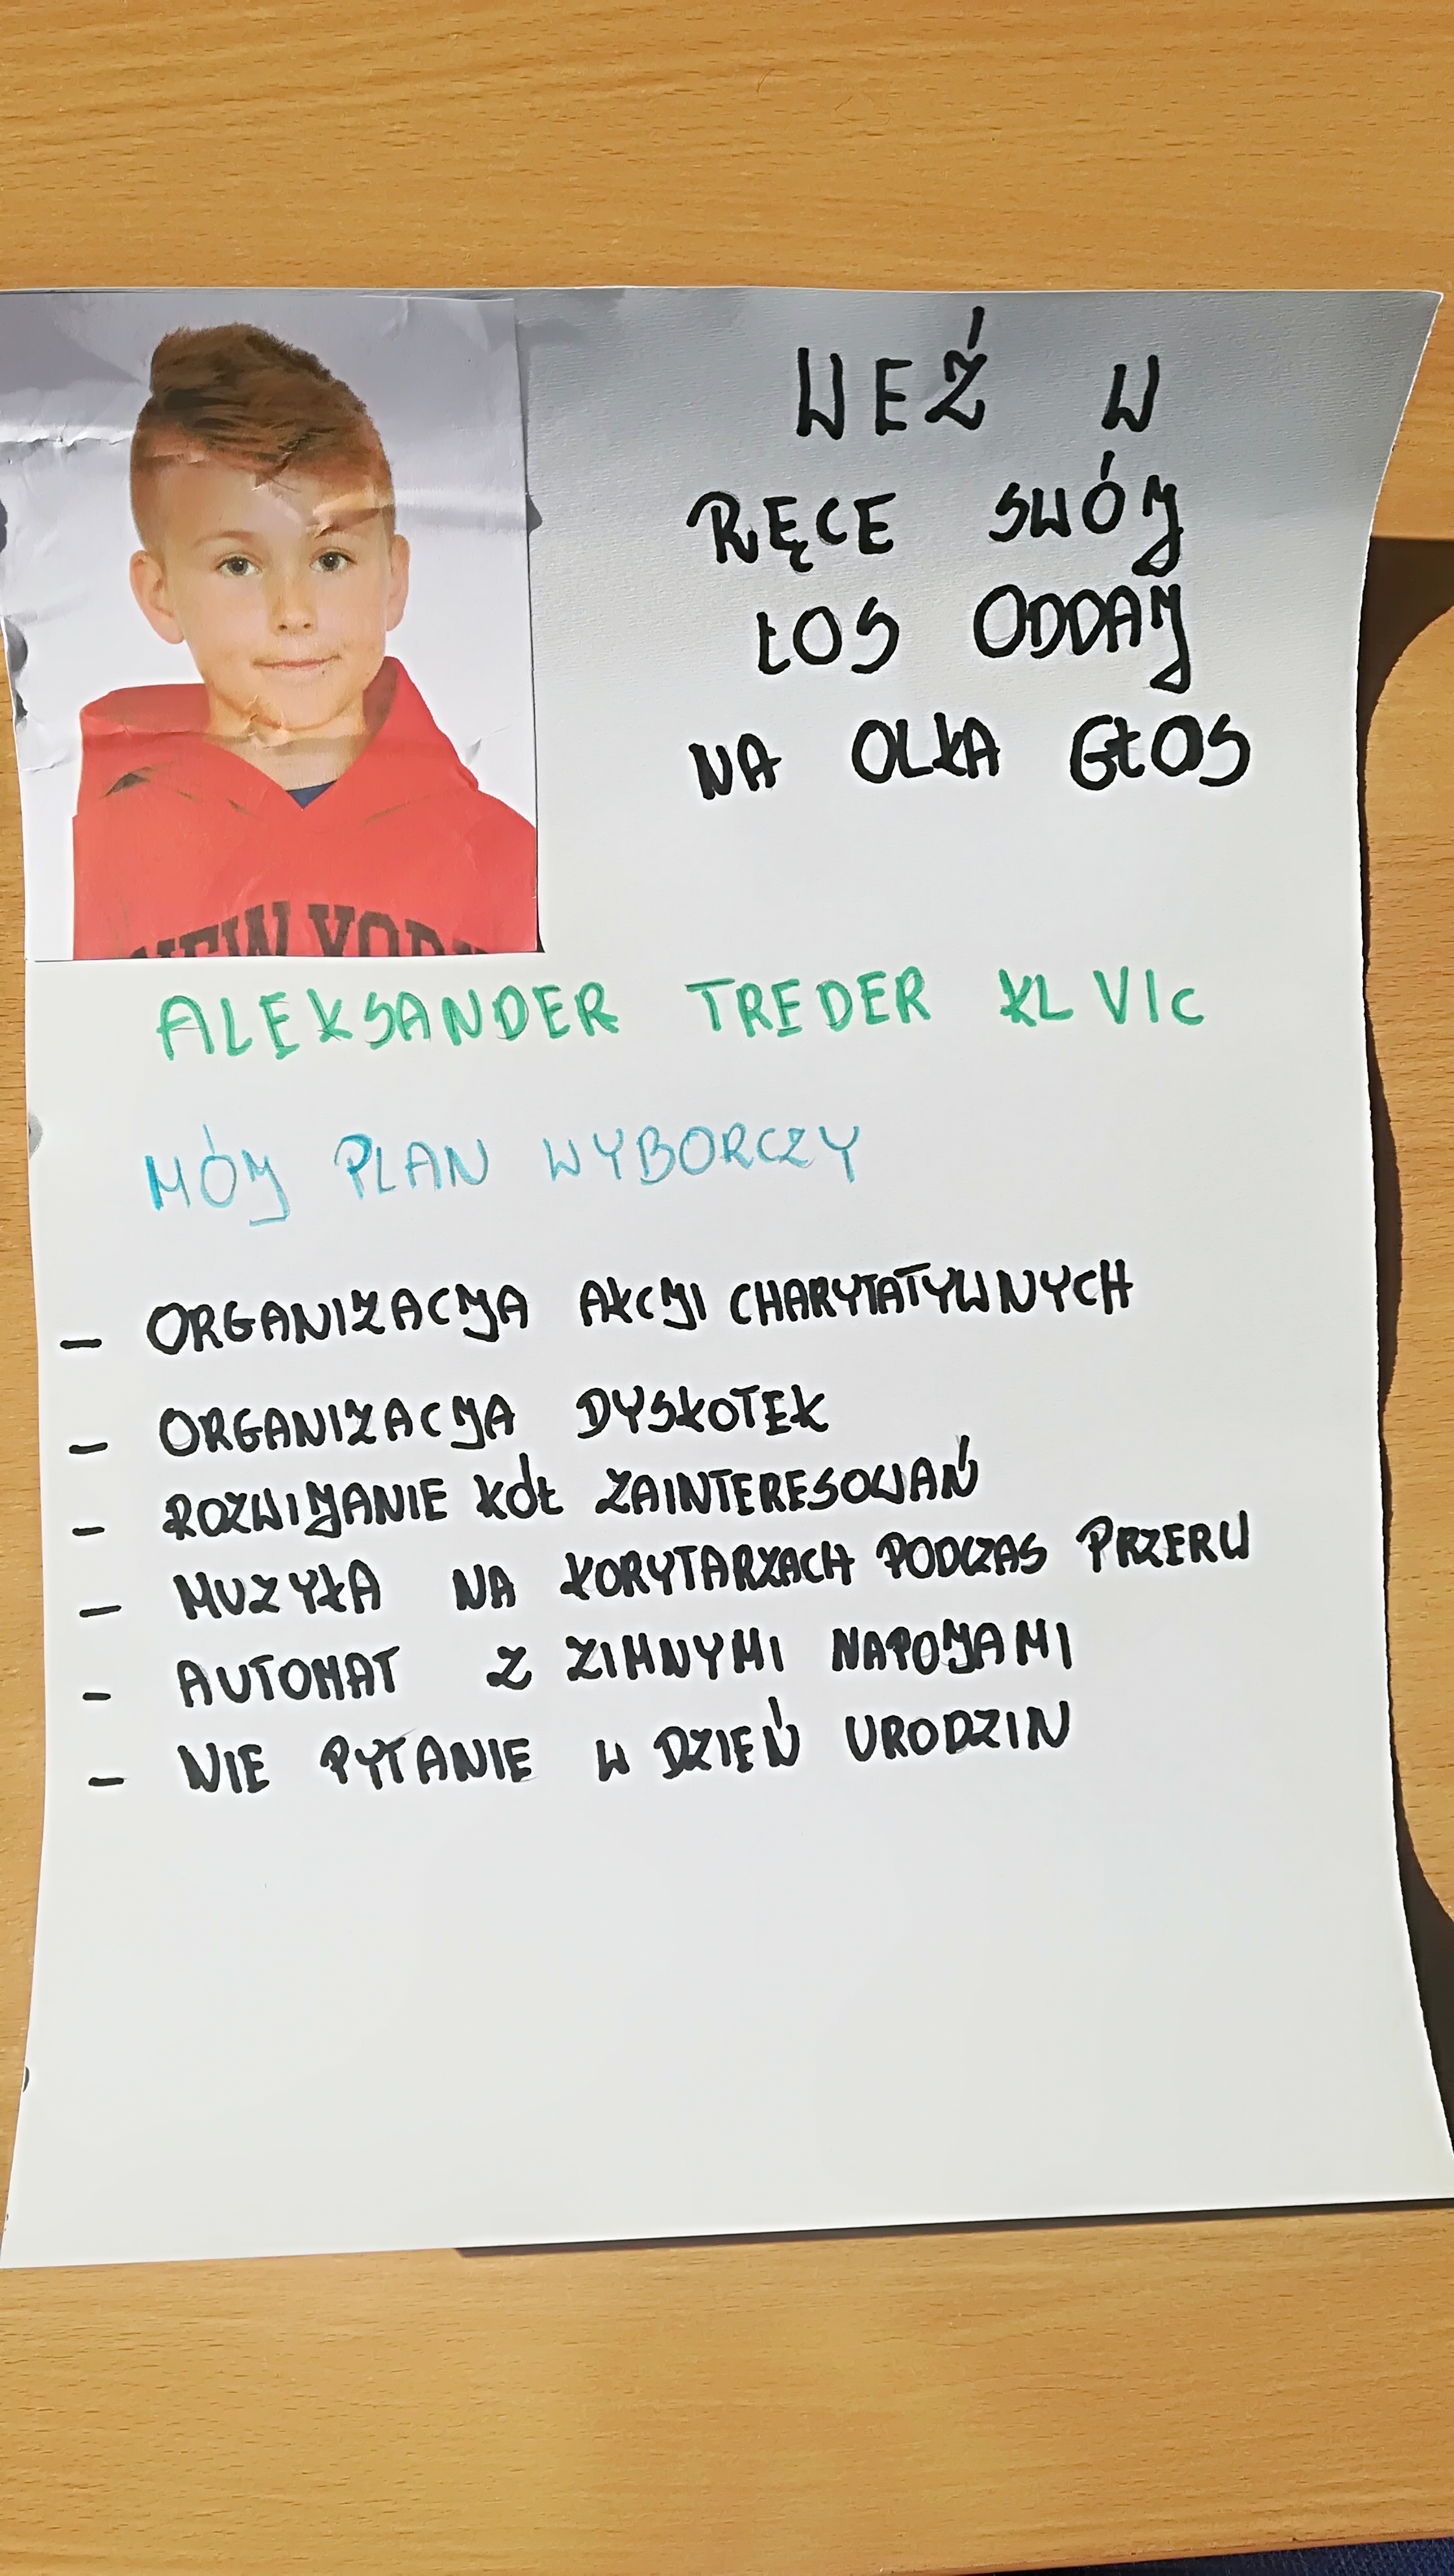 WEŹ W
RĘCE SWÓJ
ŁOS ODDAJ
NA OLKA GŁOS
NEW YORK
ALEKSANDER TREDER KL VIc
MÓJ PLAN WYBORCZY
- ORGANIZACJA AKCJI CHARYTATYWNYCH
- ORGANIZACJA DYSKOTEK
- ROZWIJANIE KÓŁ ZAINTERESOWAŃ
- MUZYKA NA KORYTARZACH PODCZAS PRZERW
- AUTOMAT Z ZIMNYMI NAPOJAMI
- NIE PYTANIE W DZIEŃ URODZIN